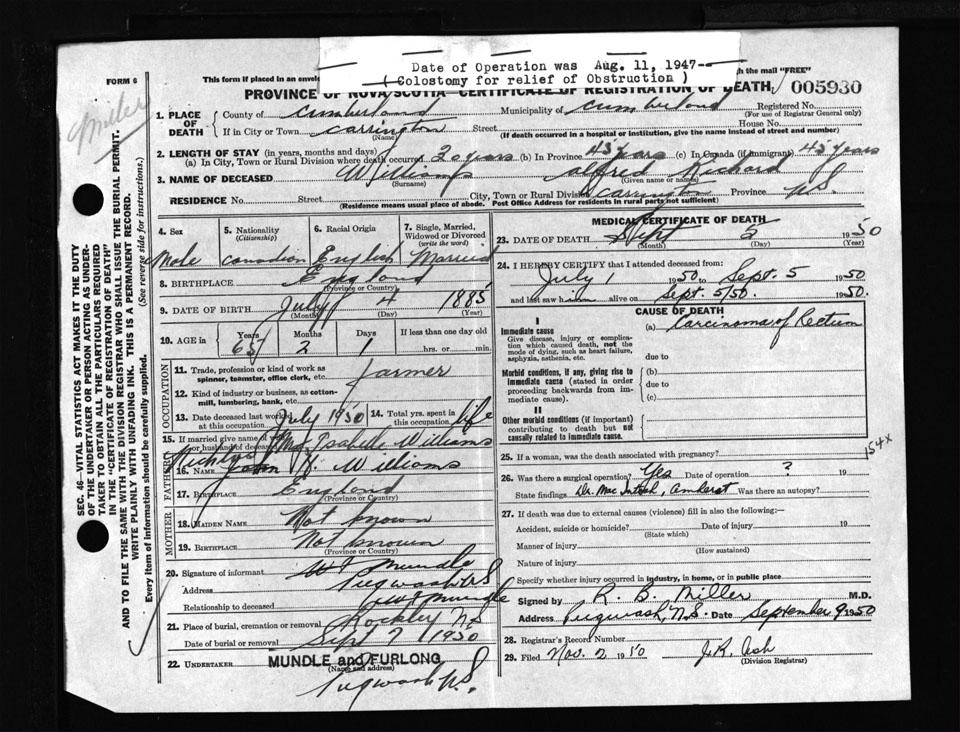 Date of Operation was Aug. 11, 1947--
( Colostomy for relief of Obstruction )
FORM 6
This form if placed in an envel
gh the mail "FREE"
PROVINCE OF NOVA SCOTIA CERTIFICATE OF REGISTRATION OF DEATH
005930
Miller
1. PLACE OF DEATH
County of Cumberland Municipality of Cumberland Registered No.
(For use of Registrar General only)
If in City or Town Carrington Street House No.
(Name) (If death occurred in a hospital or institution, give the name instead of street and number)
2. LENGTH OF STAY (in years, months and days)
(a) In City, Town or Rural Division where death occurred 20 years (b) In Province 45 years (c) In Canada (if immigrant) 45 years
3. NAME OF DECEASED Williams Alfred Richard
(Surname) (Given name or names)
RESIDENCE No. Street City, Town or Rural Division Carrington Province N.S.
(Residence means usual place of abode. Post Office Address for residents in rural parts not sufficient)
4. Sex Male
5. Nationality (Citizenship) Canadian
6. Racial Origin English
7. Single, Married, Widowed or Divorced (write the word) Married
8. BIRTHPLACE England
(Province or Country)
9. DATE OF BIRTH July 4 1885
(Month) (Day) (Year)
10. AGE in Years 65 Months 2 Days 1 If less than one day old
hrs. or min.
OCCUPATION
11. Trade, profession or kind of work as spinner, teamster, office clerk, etc. farmer
12. Kind of industry or business, as cotton-mill, lumbering, bank, etc.
13. Date deceased last worked at this occupation July 1950 14. Total yrs. spent in this occupation life
15. If married give name of wife or husband of deceased Mrs Isabelle Williams
FATHER
16. Name John H. Williams
17. BIRTHPLACE England
(Province or Country)
MOTHER
18. MAIDEN NAME Not known
19. BIRTHPLACE Not known
(Province or Country)
20. Signature of informant Wt Mundle
Address Pugwash N.S
Relationship to deceased
21. Place of burial, cremation or removal Rockley N.S
Date of burial or removal Sept 7 1950
22. UNDERTAKER MUNDLE and FURLONG
(Name and address)
Pugwash N.S.
MEDICAL CERTIFICATE OF DEATH
23. DATE OF DEATH Sept 5 1950
(Month) (Day) (Year)
24. I HEREBY CERTIFY that I attended deceased from:
July 1 1950 to Sept. 5 1950
and last saw him alive on Sept. 5/50. 1950.
CAUSE OF DEATH
I
Immediate cause
Give disease, injury or complication which caused death, not the mode of dying, such as heart failure, asphyxia, asthenia, etc.
(a) Carcinoma of Rectum
due to
Morbid conditions, if any, giving rise to immediate cause (stated in order proceeding backwards from immediate cause).
(b)
due to
(c)
II
Other morbid conditions (if important) contributing to death but not causally related to immediate cause.
154x
25. If a woman, was the death associated with pregnancy?
26. Was there a surgical operation? Yes Date of operation ? 19
State findings Dr. MacIntosh, Amherst Was there an autopsy?
27. If death was due to external causes (violence) fill in also the following:—
Accident, suicide or homicide? Date of injury 19
(State which)
Manner of injury
(How sustained)
Nature of injury
Specify whether injury occurred in industry, in home, or in public place
Signed by R. B. Miller M.D.
Address Pugwash, N.S. Date September 9 1950
28. Registrar's Record Number
29. Filed Nov. 2 1950 J.R. Ash
(Division Registrar)
SEC. 46—VITAL STATISTICS ACT MAKES IT THE DUTY
OF THE UNDERTAKER OR PERSON ACTING AS UNDER-
TAKER TO OBTAIN ALL THE PARTICULARS REQUIRED
IN THE "CERTIFICATE OF REGISTRATION OF DEATH"
AND TO FILE THE SAME WITH THE DIVISION REGISTRAR WHO SHALL ISSUE THE BURIAL PERMIT.
WRITE PLAINLY WITH UNFADING INK. THIS IS A PERMANENT RECORD.
Every item of information should be carefully supplied. (See reverse side for instructions.)